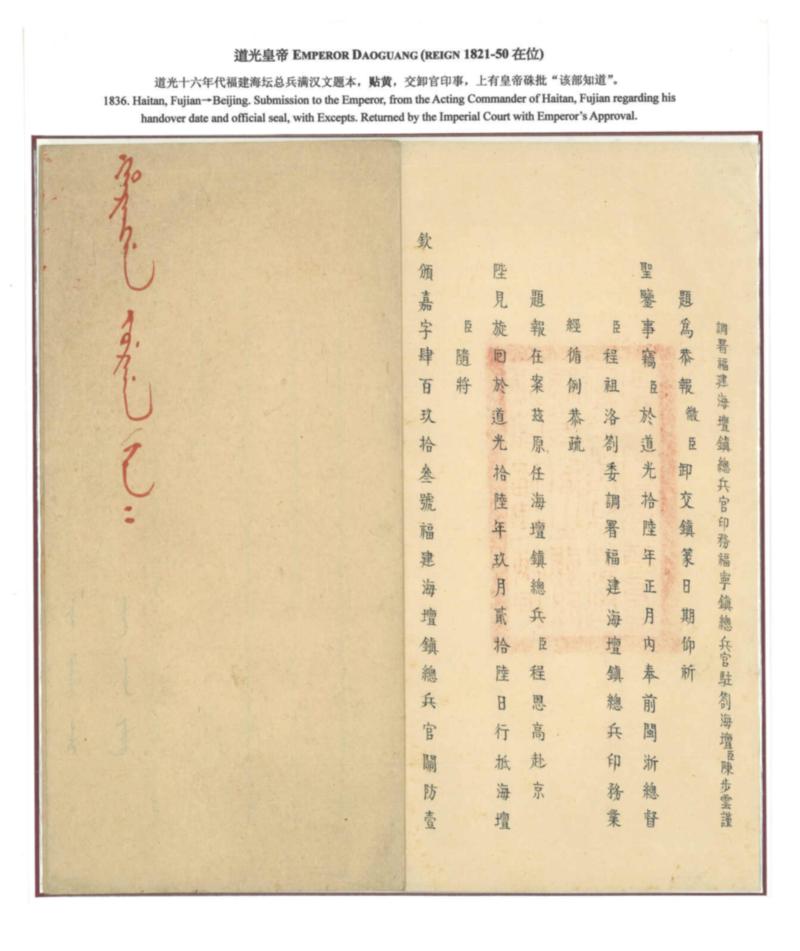 道光皇帝 EMPEROR DAOGUANG (REIGN 1821-50 在位)
道光十六年代福建海坛总兵满汉文题本，贴黄，交卸官印事，上有皇帝硃批“该部知道”。
1836. Haitan, Fujian→Beijing. Submission to the Emperor, from the Acting Commander of Haitan, Fujian regarding his
handover date and official seal, with Excepts. Returned by the Imperial Court with Emperor's Approval.
調署福建海壇鎮總兵官印務福寧鎮總兵官駐劄海壇臣陳步雲謹
題為恭報微臣卸交鎮篆日期仰祈
聖鑒事竊臣於道光拾陸年正月內奉前閩浙總督
臣程祖洛劄委調署福建海壇鎮總兵印務業
經循例恭疏
題報在案茲原任海壇鎮總兵臣程恩高赴京
陛見旋回於道光拾陸年玖月貳拾陸日行抵海壇
臣隨將
欽頒嘉字肆百玖拾叁號福建海壇鎮總兵官關防壹